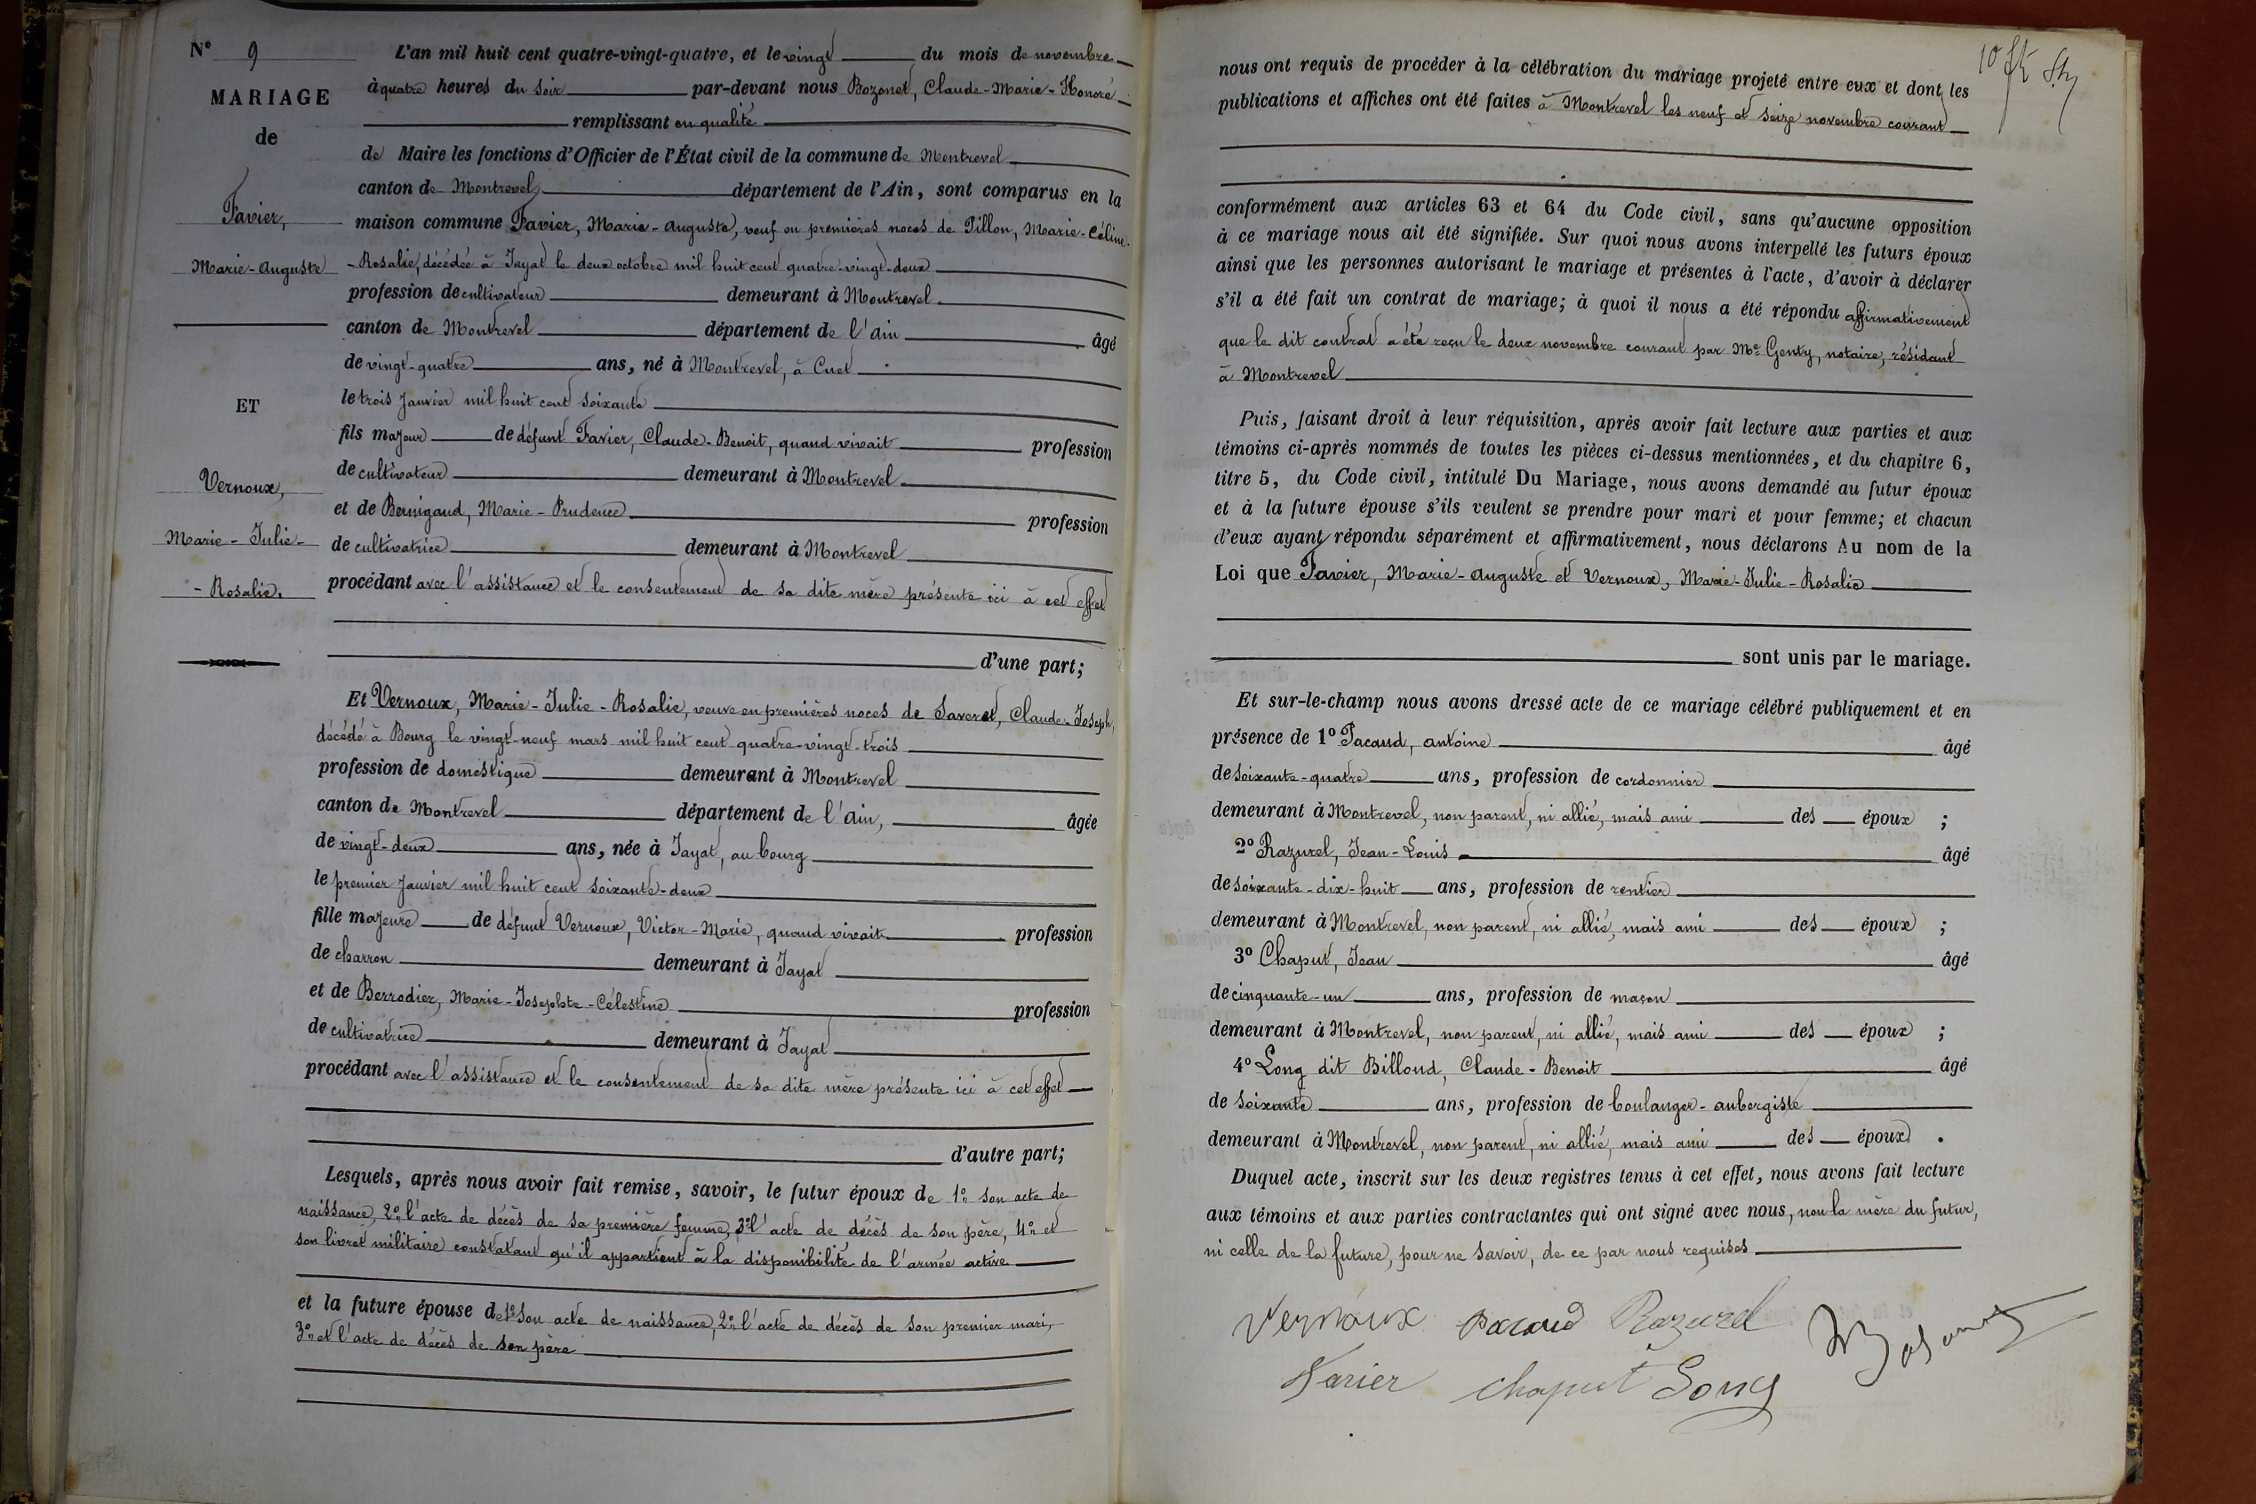 N° 9
MARIAGE
de
Favier,
Marie-Auguste
ET
Vernoux,
Marie-Julie-
-Rosalie.
L'an mil huit cent quatre-vingt-quatre, et le vingt du mois de novembre
à quatre heures du soir par-devant nous Bozonet, Claude-Marie-Honoré
remplissant en qualité
de Maire les fonctions d'Officier de l'État civil de la commune de Montrevel
canton de Montrevel département de l'Ain, sont comparus en la
maison commune Favier, Marie-Auguste, veuf en premières noces de Pillon, Marie-Céline-
-Rosalie, décédée à Jayat le deux octobre mil huit cent quatre-vingt-deux
profession de cultivateur demeurant à Montrevel
canton de Montrevel département de l'ain âgé
de vingt-quatre ans, né à Montrevel, à Cuet
le trois Janvier mil huit cent soixante
fils majeur de défunt Favier, Claude-Benoit, quand vivait profession
de cultivateur demeurant à Montrevel
et de Bernigaud, Marie-Prudence profession
de cultivatrice demeurant à Montrevel
procédant avec l'assistance et le consentement de sa dite mère présente ici à cet effet
d'une part;
Et Vernoux, Marie-Julie-Rosalie, veuve en premières noces de Saveret, Claude-Joseph,
décédé à Bourg le vingt-neuf mars mil huit cent quatre-vingt-trois
profession de domestique demeurant à Montrevel
canton de Montrevel département de l'ain, âgée
de vingt-deux ans, née à Jayat, au bourg
le premier Janvier mil huit cent soixante-deux
fille majeure de défunt Vernoux, Victor-Marie, quand vivait profession
de charron demeurant à Jayat
et de Berrodier, Marie-Josephte-Célestine profession
de cultivatrice demeurant à Jayat
procédant avec l'assistance et le consentement de sa dite mère présente ici à cet effet
d'autre part;
Lesquels, après nous avoir fait remise, savoir, le futur époux de 1° son acte de
naissance, 2° l'acte de décès de sa première femme, 3° l'acte de décès de son père, 4° et
son livret militaire constatant qu'il appartient à la disponibilité de l'armée active
et la future épouse de 1° son acte de naissance, 2° l'acte de décès de son premier mari,
3° et l'acte de décès de son père
nous ont requis de procéder à la célébration du mariage projeté entre eux et dont les
publications et affiches ont été faites à Montrevel les neuf et seize novembre courant
conformément aux articles 63 et 64 du Code civil, sans qu'aucune opposition
à ce mariage nous ait été signifiée. Sur quoi nous avons interpellé les futurs époux
ainsi que les personnes autorisant le mariage et présentes à l'acte, d'avoir à déclarer
s'il a été fait un contrat de mariage; à quoi il nous a été répondu affirmativement
que le dit contrat a été reçu le deux novembre courant par Me Genty, notaire, résidant
à Montrevel
Puis, faisant droit à leur réquisition, après avoir fait lecture aux parties et aux
témoins ci-après nommés de toutes les pièces ci-dessus mentionnées, et du chapitre 6,
titre 5, du Code civil, intitulé Du Mariage, nous avons demandé au futur époux
et à la future épouse s'ils veulent se prendre pour mari et pour femme; et chacun
d'eux ayant répondu séparément et affirmativement, nous déclarons Au nom de la
Loi que Favier, Marie-Auguste et Vernoux, Marie-Julie-Rosalie
sont unis par le mariage.
Et sur-le-champ nous avons dressé acte de ce mariage célébré publiquement et en
présence de 1° Pacaud, antoine âgé
de soixante-quatre ans, profession de cordonnier
demeurant à Montrevel, non parent, ni allié, mais ami des époux ;
2° Razurel, Jean-Louis âgé
de soixante-dix-huit ans, profession de rentier
demeurant à Montrevel, non parent, ni allié, mais ami des époux ;
3° Chaput, Jean âgé
de cinquante-un ans, profession de maçon
demeurant à Montrevel, non parent, ni allié, mais ami des époux ;
4° Long dit Billoud, Claude-Benoit âgé
de soixante ans, profession de boulanger-aubergiste
demeurant à Montrevel, non parent, ni allié, mais ami des époux .
Duquel acte, inscrit sur les deux registres tenus à cet effet, nous avons fait lecture
aux témoins et aux parties contractantes qui ont signé avec nous, non la mère du futur,
ni celle de la future, pour ne savoir, de ce par nous requises
Vernoux Pacaud Razurel
Favier Chaput Long